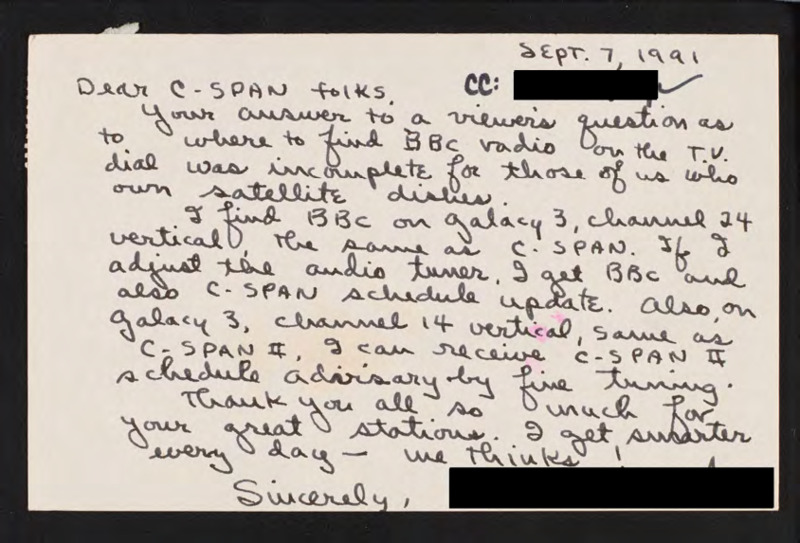 SEPT. 7, 1991
Dear C-SPAN folks, CC:
Your answer to a viewer's question as
to where to find BBC radio on the T.V.
dial was incomplete for those of us who
own satellite dishes.
I find BBC on galacy 3, channel 24
vertical, the same as C-SPAN. If I
adjust the audio tuner, I get BBC and
also C-SPAN schedule update. Also, on
galacy 3, channel 14 vertical, same as
C-SPAN II, I can receive C-SPAN II
schedule advisary by fine tuning.
Thank you all so much for
your great stations. I get smarter
every day — me thinks!
Sincerely,